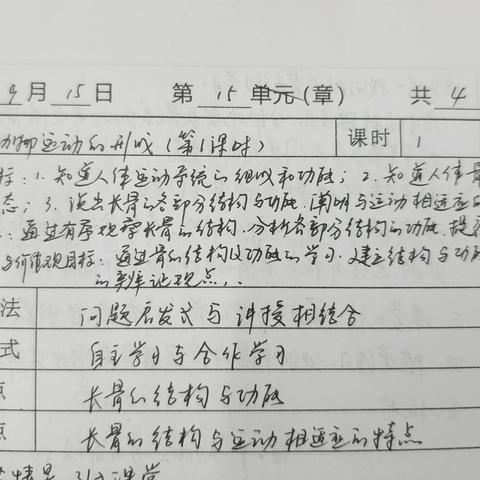 9月15日 第15单元(章) 共4
动物运动的形成(第1课时) 课时 1
标:1.知道人体运动系统的组成和功能;2.知道人体骨
态;3.说出长骨的各部分结构与功能,阐明与运动相适应的
:通过有序观察长骨的结构,分析各部分结构的功能,提
与价值观目标:通过骨的结构及功能的学习,建立结构与功能
的辩证观点.
法 问题启发式与讲授相结合
式 自主学习与合作学习
点 长骨的结构与功能
点 长骨的结构与运动相适应的特点
情景 引入课堂